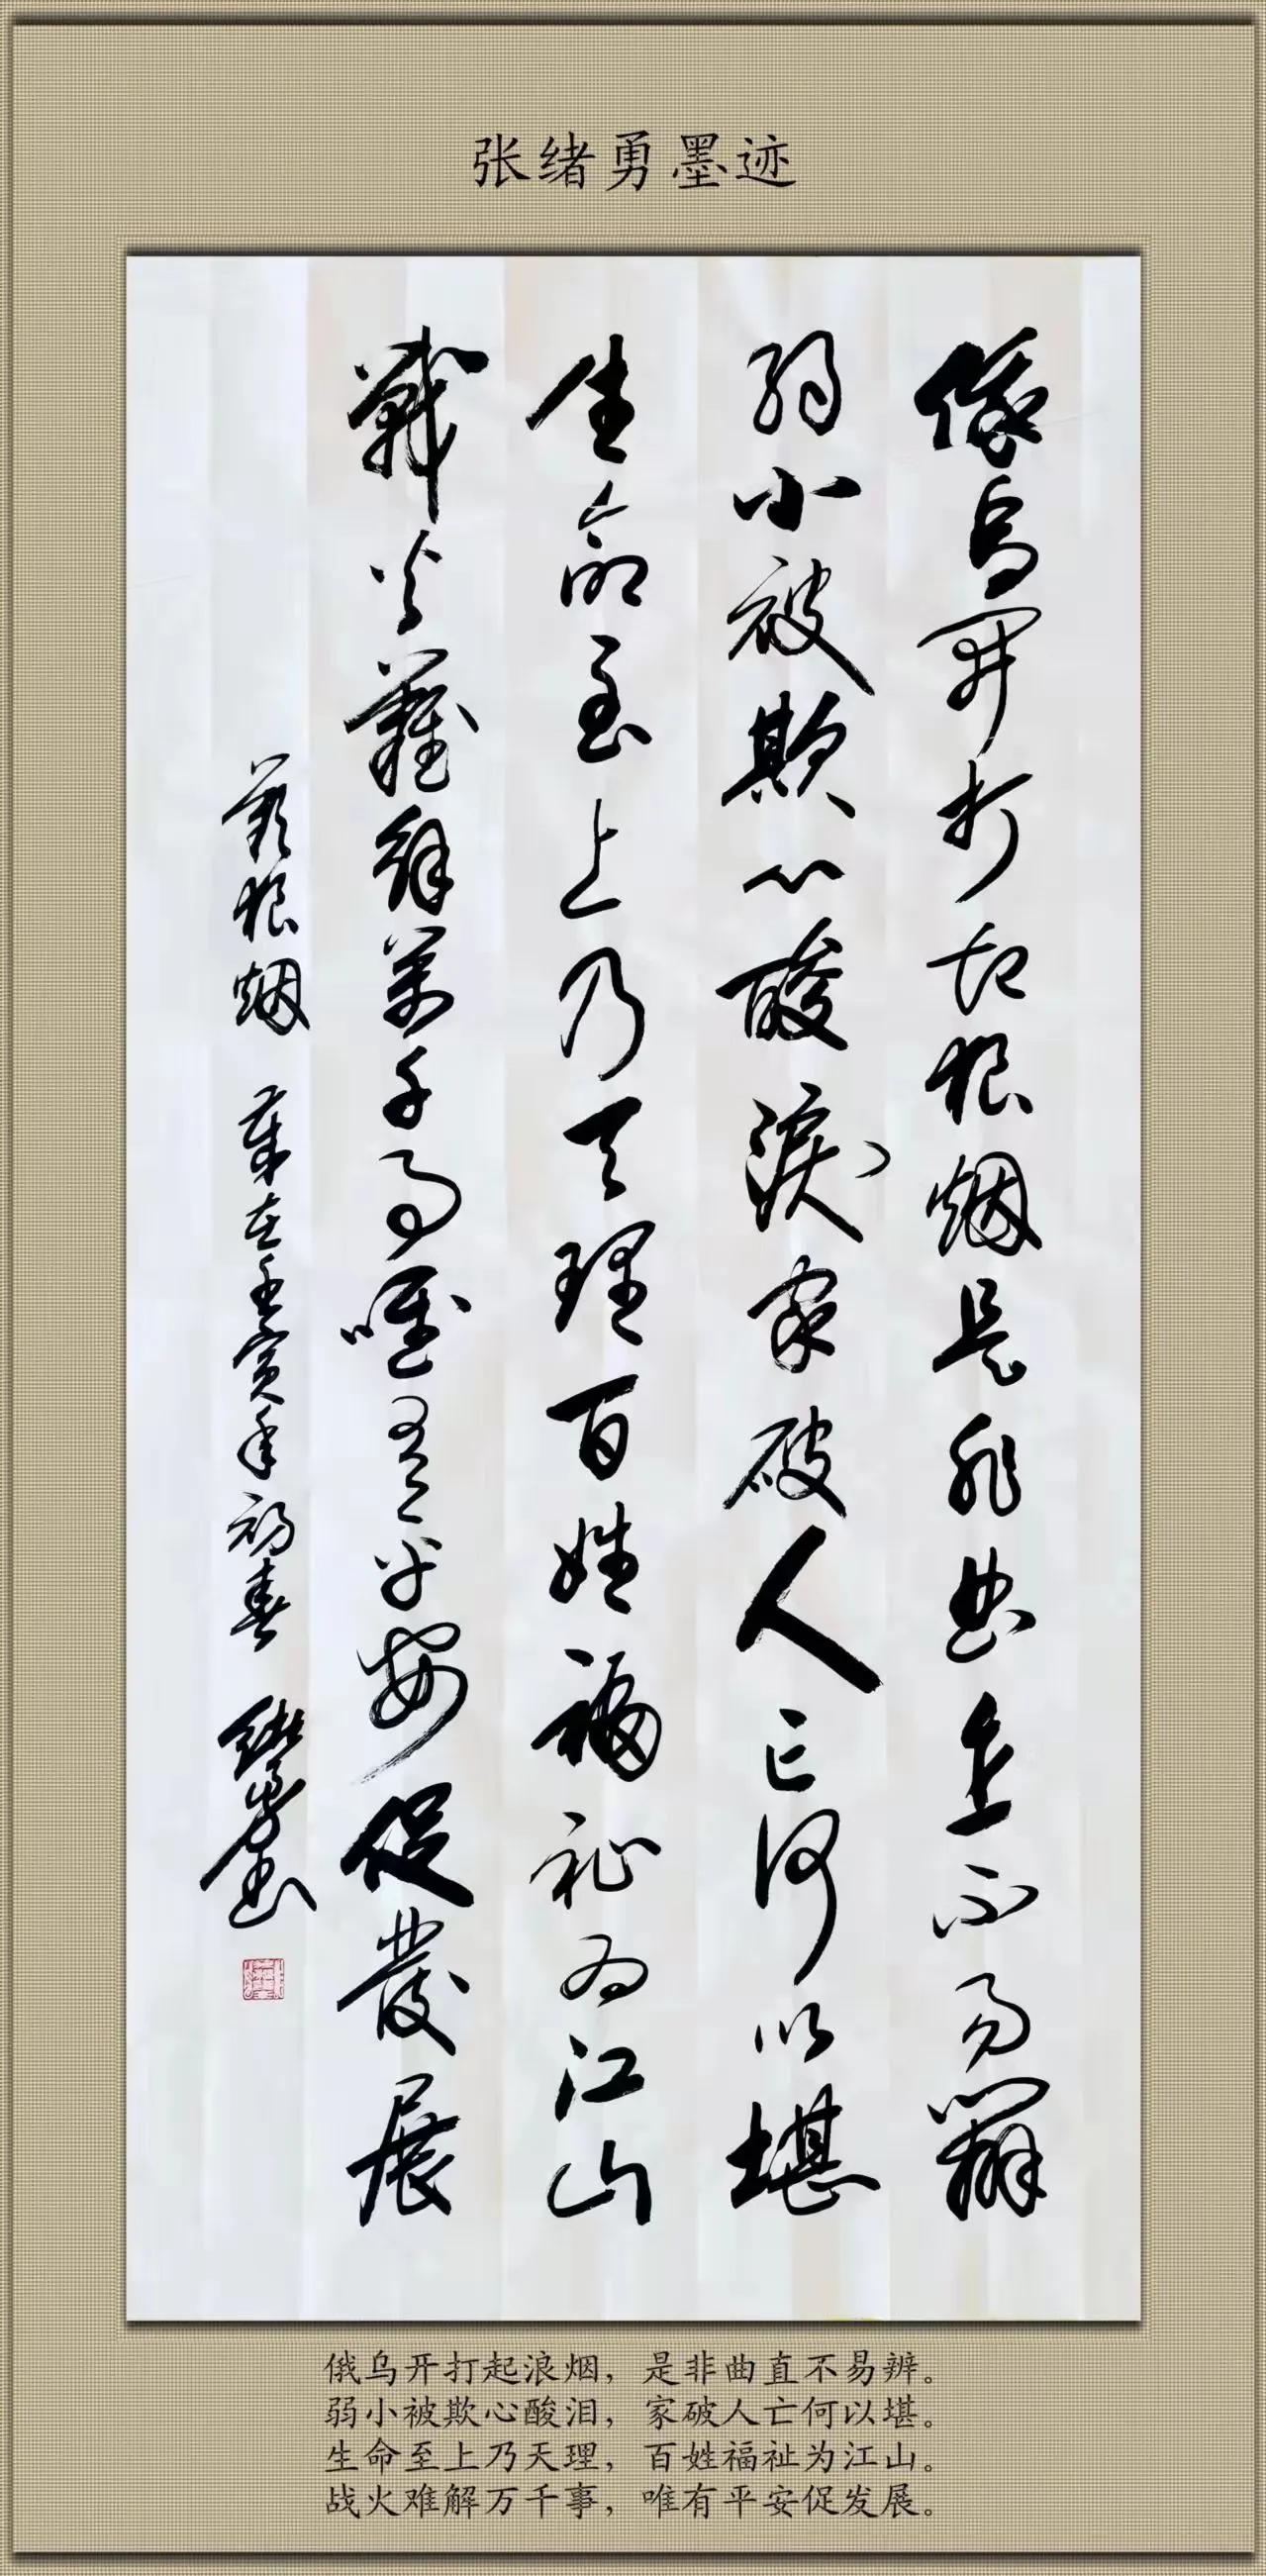 张绪勇墨迹
俄烏開打起狼烟是非曲直不易辨
弱小被欺心酸淚家破人亡何以堪
生命至上乃天理百姓福祉為江山
戰火難解萬千事唯有平安促發展
歎狼烟 在壬寅年初春 緒勇書
俄乌开打起浪烟，是非曲直不易辨。
弱小被欺心酸泪，家破人亡何以堪。
生命至上乃天理，百姓福祉为江山。
战火难解万千事，唯有平安促发展。